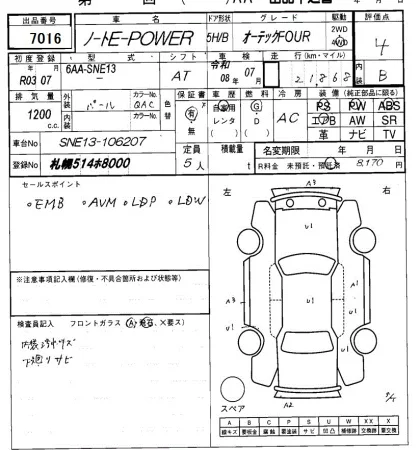 出品番号 車名 ドア形状 グレード 駆動 評価点
7016 ノートE-POWER 5H/B オーテックFOUR 2WD 4WD 4
初度登録 型式 シフト 車検 走行(km・マイル) 内装
R03 07 6AA-SNE13 AT 令和 08年 07月 21,868 B
排気量 外装 カラーNo. 色替 保証書 車歴 燃料 冷房 装備(純正部品に限る)
1200 c.c. パール QAC 有・無 自家用 レンタ G・D AC PS PW ABS
内装 カラーNo. エアB AW SR
革 ナビ TV
車台No SNE13-106207 定員 積載量 名変期限 年 月 日
登録No 札幌514ホ8000 5人 t R料金 未預託・預託済 8,170円
セールスポイント
・EMB ・AVM ・LDP ・LDW
※注意事項記入欄(修復・不具合箇所および状態等)
検査員記入 フロントガラス(A,飛石、X要ス)
内装汚れキズ
下廻りサビ
左 右
A3
U1
U1
U1
A3 U1
U1 U1
A2
スペア
A B C P S U W X XX
線キズ 要板金 腐触 要塗装 サビ 凹凸 補修跡 交換跡 要交換